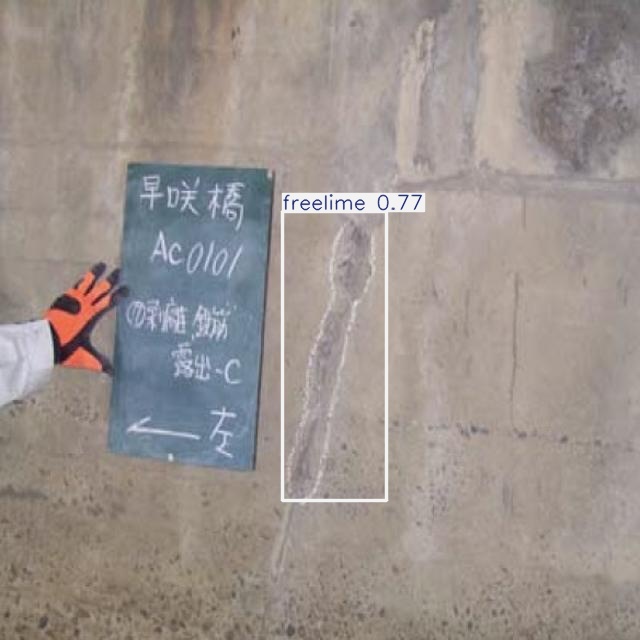 早咲橋
Ac0101
⑦剥離 鉄筋
露出-C
左
freelime 0.77